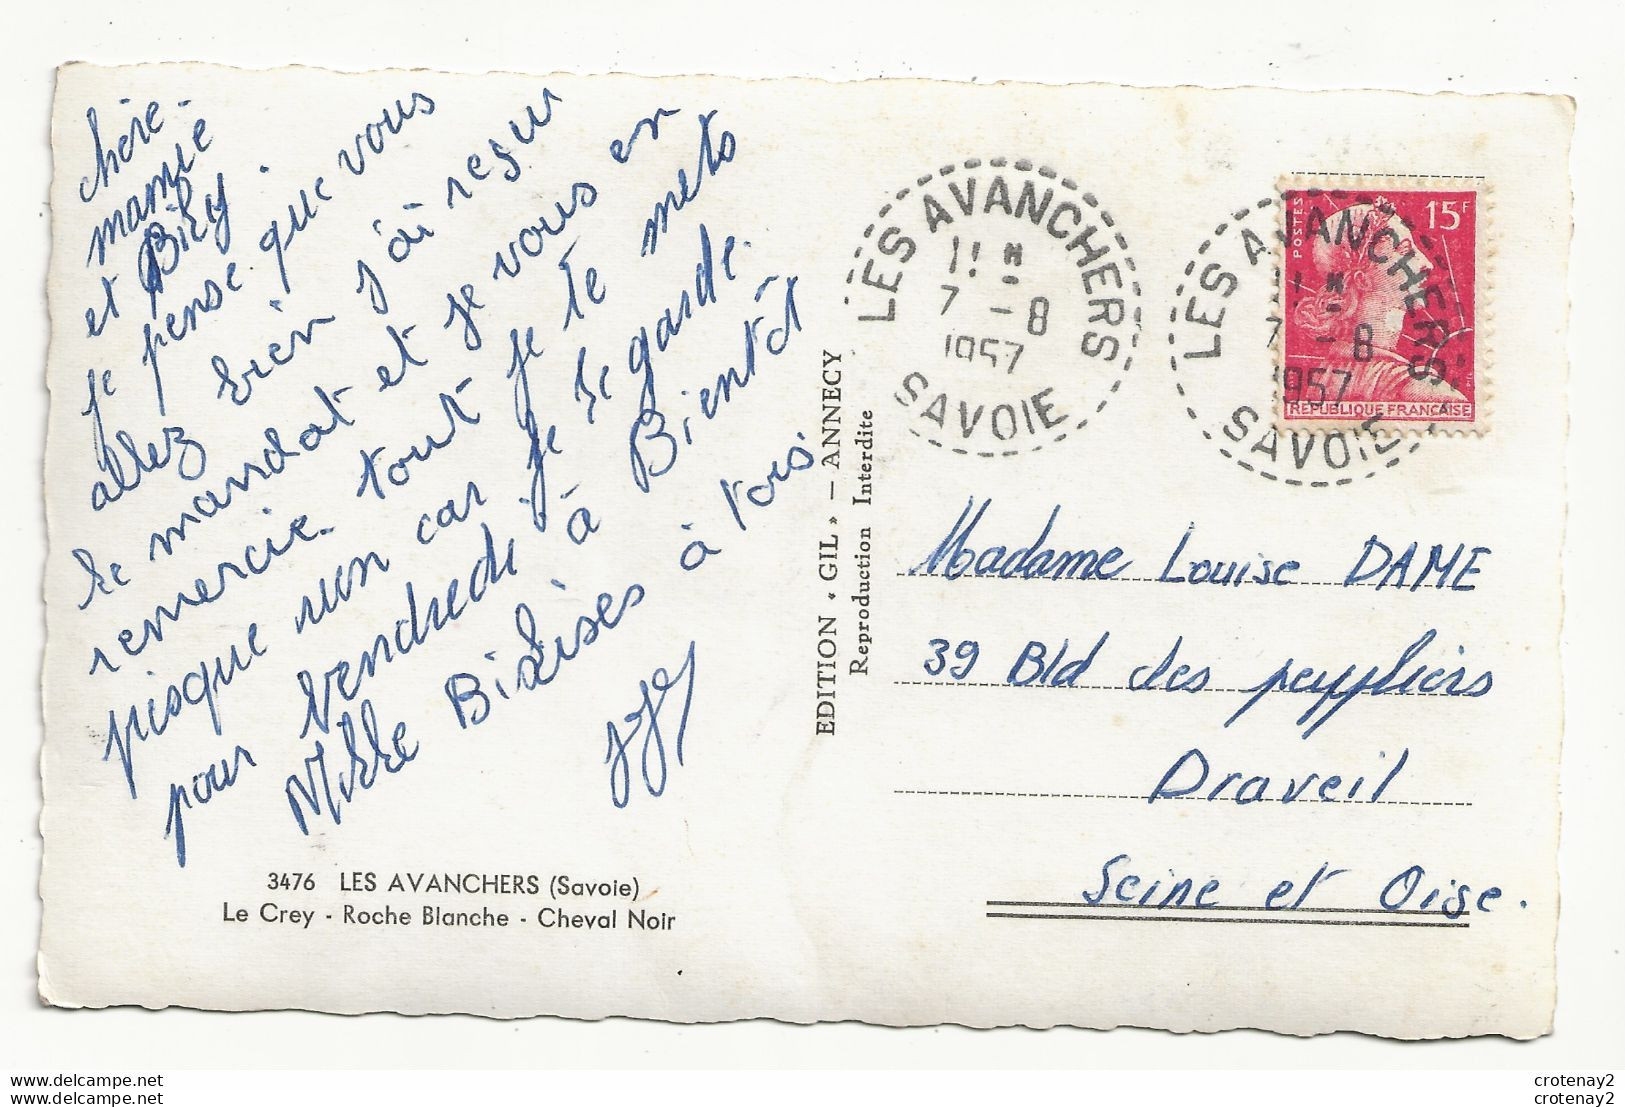 chère
mamie
et Biky
je pense que vous
allez bien j'ai resu
le mandat et je vous en
remercie tout je te mets
pisque mon car je le garde.
pour Vendredi à Bientôt
Mille Bixises à tois
3476 LES AVANCHERS (Savoie)
Le Crey - Roche Blanche - Cheval Noir
EDITION « GIL » — ANNECY
Reproduction Interdite
LES AVANCHERS
7 - 8
1957
SAVOIE
LES AVANCHERS
7 - 8
1957
SAVOIE
POSTES
15F
REPUBLIQUE FRANÇAISE
Madame Louise DAME
39 Bld des peyppliers
Draveil
Seine et Oise.
www.delcampe.net
www.delcampe.net
crotenay2
crotenay2